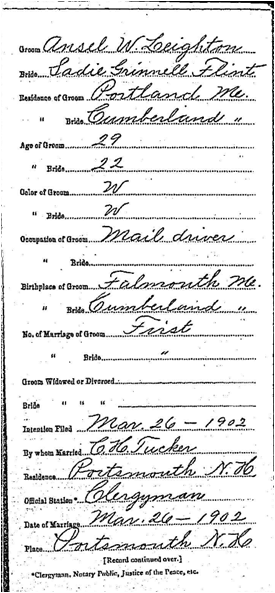 Groom Ansel W. Leighton
Bride Sadie Grinnell Flint
Residence of Groom Portland Me.
" Bride Cumberland "
Age of Groom 29
" Bride 22
Color of Groom W
" Bride W
Occupation of Groom Mail driver
" Bride
Birthplace of Groom Falmouth Me.
" Bride Cumberland "
No. of Marriage of Groom First
" Bride "
Groom Widowed or Divorced
Bride " " "
Intention Filed Mar. 26 - 1902
By whom Married C. H. Tucker
Residence Portsmouth N. H
Official Station* Clergyman
Date of Marriage Mar. 26 - 1902
Place Portsmouth N. H
[Record continued over.]
*Clergyman, Notary Public, Justice of the Peace, etc.